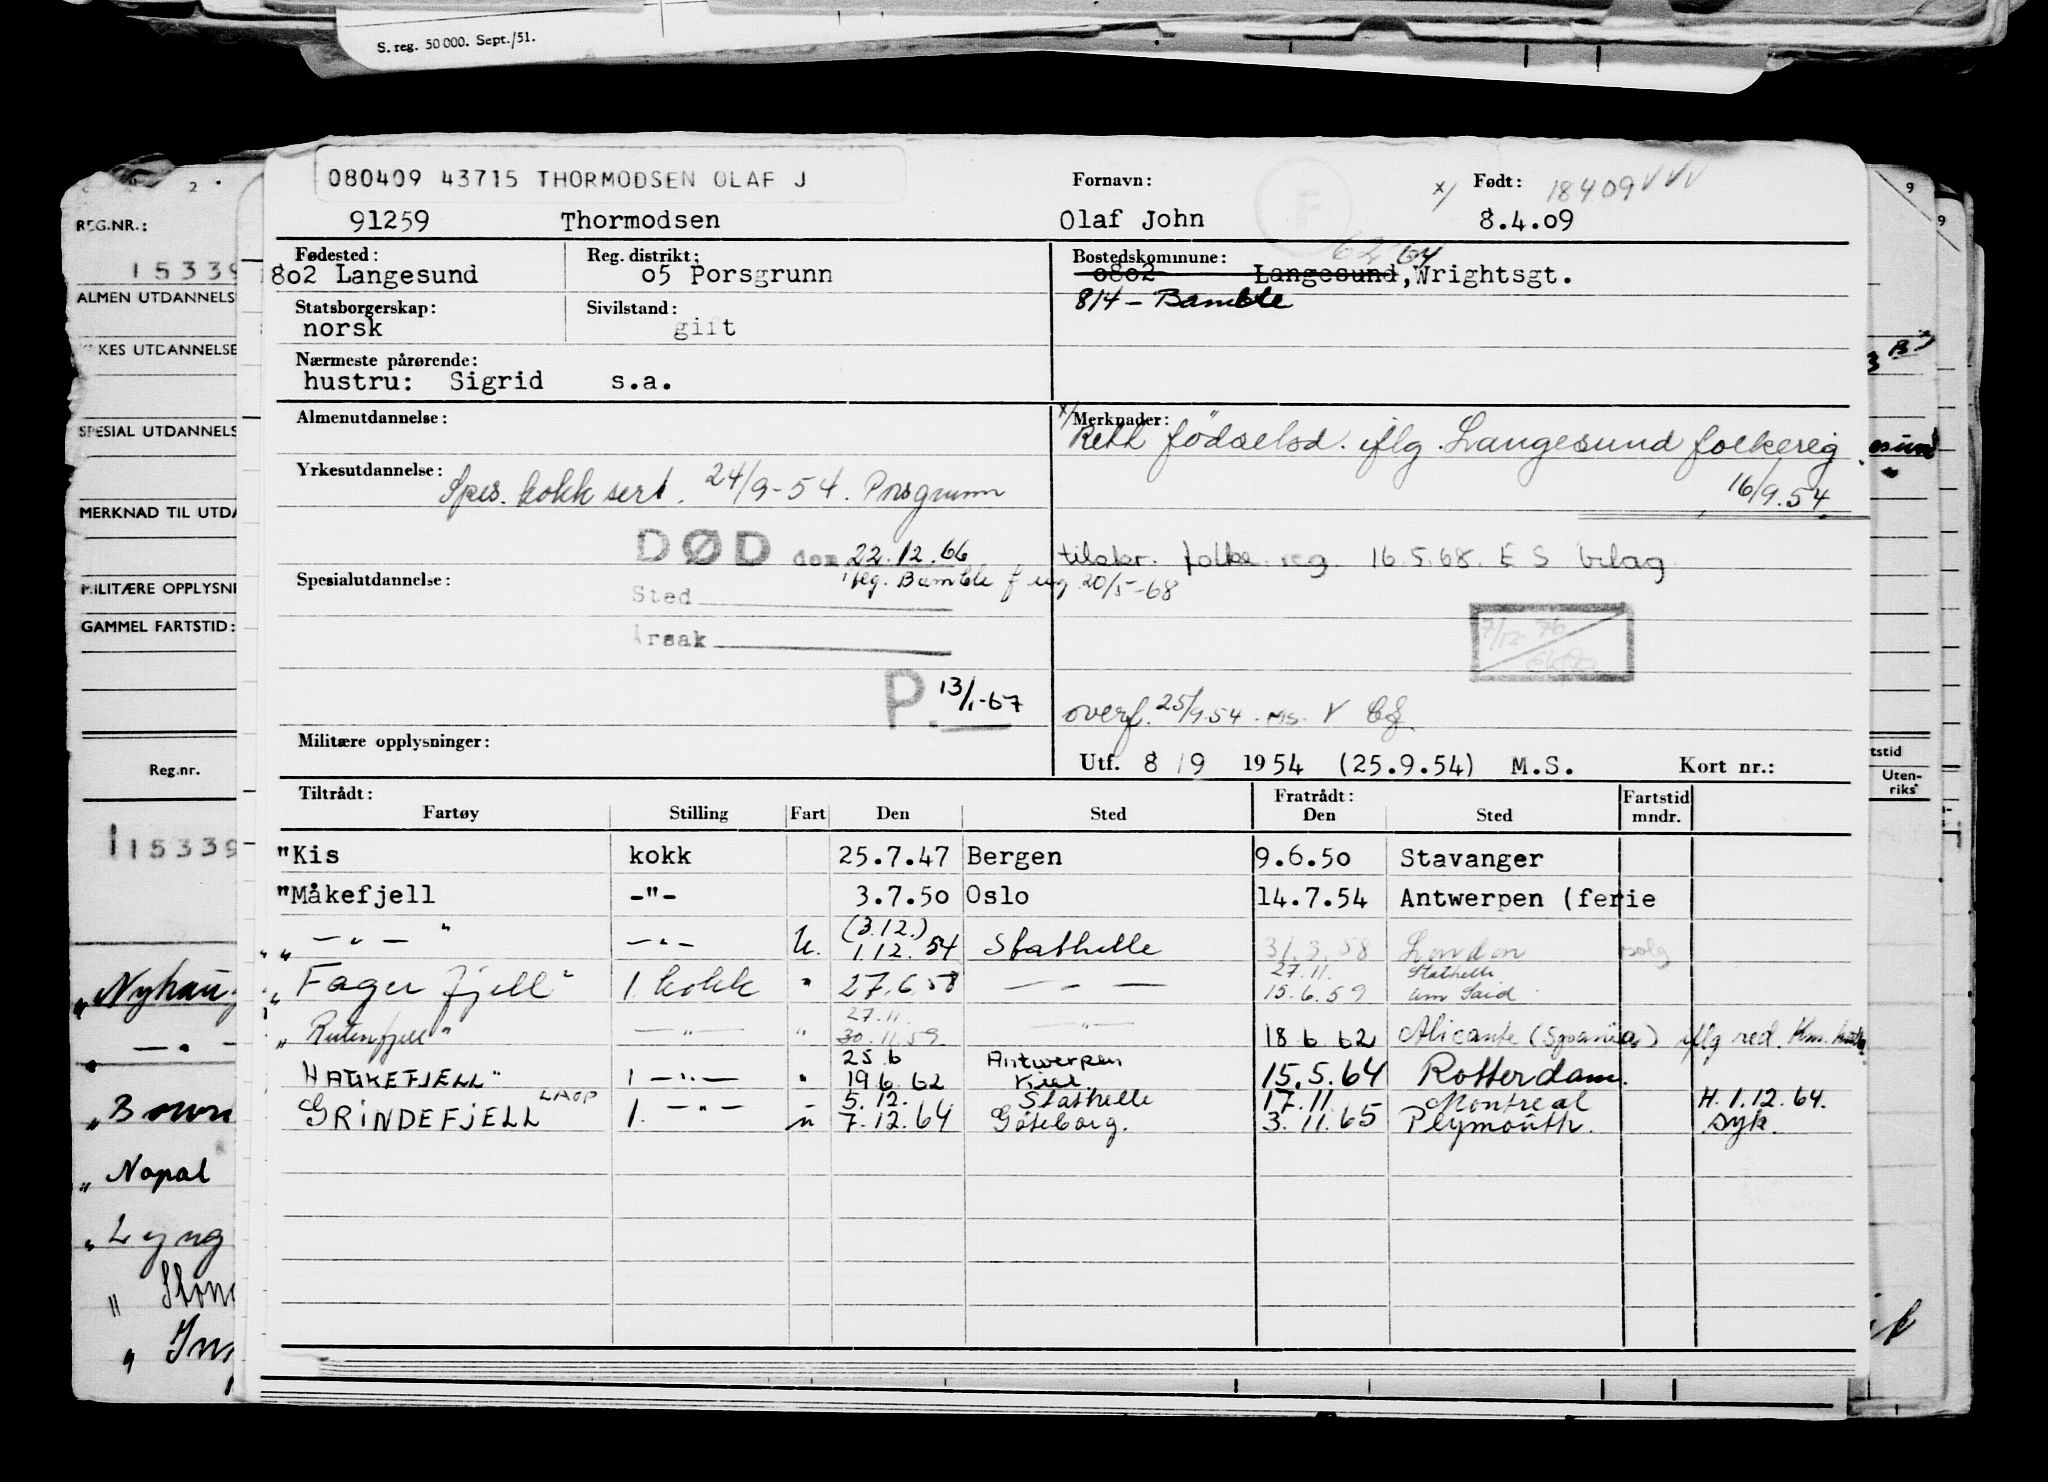 S. reg. 50 000. Sept./51.
2
REG.NR.:
15339
ALMEN UTDANNELS
KES UTDANNELSE
SPESIAL UTDANNELS
MERKNAD TIL UTDA
MILITÆRE OPPLYSNI
GAMMEL FARTSTID:
Reg.nr.
15339
„Nyhau
— " —
„Bown
„Napal
„Lyng
080409 43715 THORMODSEN OLAF J
Fornavn:
x/
Født: 18409 V V V
91259 Thormodsen Olaf John 8.4.09
F
Fødested: Reg. distrikt: Bostedskommune: 62 64
802 Langesund 05 Porsgrunn 0802 Langesund, Wrightsgt.
814 - Bamble
Statsborgerskap: Sivilstand:
norsk gift
Nærmeste pårørende:
hustru: Sigrid s.a.
Almenutdannelse: x/ Merknader:
Rett födselsd. iflg. Langesund folkereg
Yrkesutdannelse: Spes. kokk sert. 24/9-54. Porsgrunn 16/9.54.
DØD den 22.12.66 tilskr. folke reg. 16.5.68. E S bilag
iflg. Bamble f reg 20/5-68
Spesialutdannelse:
Sted
Årsak
7/12 76
P. 13/1-67
overf. 25/9 54. Ms. V
Militære opplysninger: Utf. 8/9 1954 (25.9.54) M.S. Kort nr.:
Tiltrådt: Fratrådt: Fartstid
Fartøy Stilling Fart Den Sted Den Sted mndr.
"Kis kokk 25.7.47 Bergen 9.6.50 Stavanger
"Måkefjell -"- 3.7.50 Oslo 14.7.54 Antwerpen (ferie
(3.12.)
„ — " — " — " — U. 1.12.54 Stathelle 31.3.58 London solg
27.11. Stathelle
„Fagerfjell" 1. kokk " 27.6.58 — " — 15.6.59 Um Said
27.11
„Rutenfjell" — " — " 30.11.59 — " — 18 6 62 Alicante (Spania) iflg red.
25.6 Antwerpen
HAUKEFJELL" 1 — " — " 19 6. 62 Kiel. 15.5.64 Rotterdam.
5.12. Stathelle 17.11 Montreal H. 1.12.64.
GRINDEFJELL LAOP 1. — " — u 7.12.64 Göteborg. 3.11.65 Plymouth. Syk.
9
9
esund
tstid
Uten-
riks